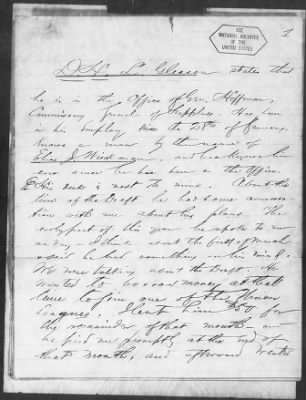 THE
NATIONAL ARCHIVES
OF THE
UNITED STATES
1
L. Gleason states that
he is in the Office of Gen. Hoffman,
Commissary Genl of Has been
in his employ since the 28th of January,
knows a man by the name of
and has known him
ever since he has been in the Office.
His desk is next to mine. About the
time of the Draft he had some conversa-
tion with me about this place. The
early part of this year he spoke to me
one day - I think about the first of March
said he had something on his mind.
We were talking about the Draft. He
wanted to borrow money at that
time to join one of the Union
Leagues. I lent him for
the remainder of that month - and
he paid me promptly at the end of
that month, and afterward wanted